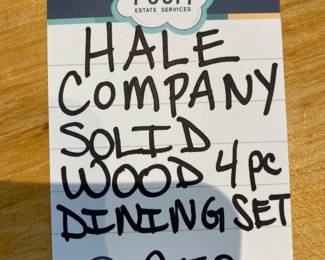 ESTATE SERVICES
HALE
COMPANY
SOLID
WOOD 4 PC
DINING SET